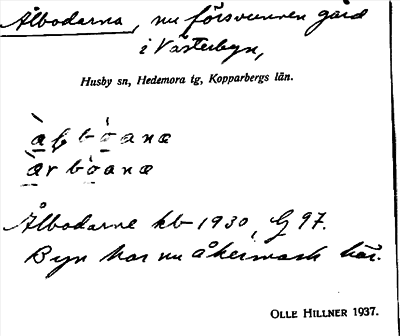 Ålbodarna, nu försvunnen gård
i Västerbyn,
Husby sn, Hedemora tg, Kopparbergs län.
Ålbodarne kb 1930, G 97.
Byn har nu åkermark här.
OLLE HILLNER 1937.